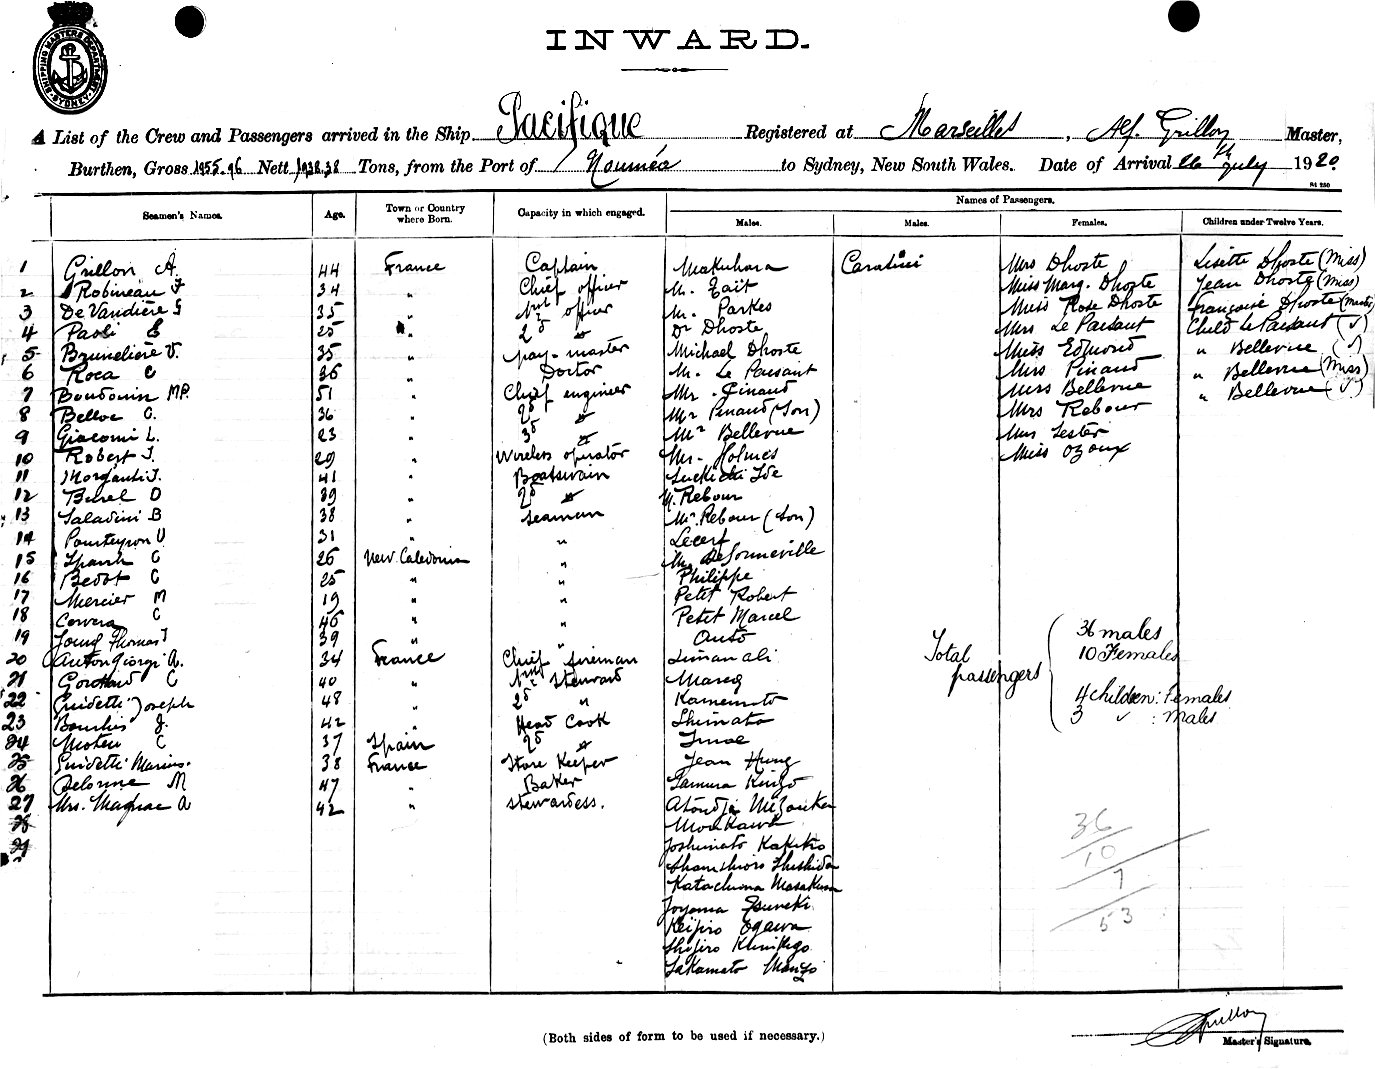 SHIPPING MASTERS DEPARTMENT SYDNEY
INWARD.
A List of the Crew and Passengers arrived in the Ship Pacifique Registered at Marseilles, Alf. Grillon Master,
Burthen, Gross 1955.96 Nett 1938.38 Tons, from the Port of Nouméa to Sydney, New South Wales. Date of Arrival 26th July 1920.
Seamen's Names. Age. Town or Country where Born. Capacity in which engaged. Names of Passengers.
Males. Males. Females. Children under Twelve Years.
1 Grillon A. 44 France Captain Makuhara Caratini Mrs Dhoste Lisette Dhoste (Miss)
2 Robineau F 34 " Chief officer M. Eait Miss Marg. Dhoste Jean Dhoste (Miss)
3 De Vaudière G 35 " 1st officer M. Parkes Miss Rose Dhoste Françoise Dhoste
4 Paoli E 25 " 2d " Dr Dhoste Mrs Le Paisant Child Le Paisant
5 Brunelière V. 35 " pay-master Michael Dhoste Miss Edmond " Bellevue
6 Roca C 36 " Doctor M. Le Paisant Mrs Pinaud " Bellevue (Miss)
7 Baudouin MP. 51 " Chief engineer Mr. Pinaud Mrs Bellevue " Bellevue
8 Belloc C. 36 " 2d " Mr Pinaud (Son) Mrs Rebour
9 Giacomi L. 23 " 3d " Mr Bellevue Mrs Lester
10 Robert J. 29 " Wireless operator Mr. Holmes Miss Ozoux
11 Morganti J. 41 " Boatswain Ide
12 Burel D 39 " 2d " M. Rebour
13 Saladini B 38 " Seaman Mr. Rebour (Son)
14 31 " " Lecerf
15 C 26 New. Caledonia " De Sonneville
16 Bedot C 25 " " Philippe
17 Mercier M 19 " " Petit Robert
18 Cervera C 46 " " Petit Marcel
19 Joung Thomas 39 " " Auto
20 Anton Giorgi A. 34 France Chief fireman Liman ali
21 C 40 " 1st Steward Marcq
22 Guidetti Joseph 48 " 2d " Kamemoto
23 J. 42 " Head Cook Shimato
24 C 37 Spain 2d "
25 Guidetti Marius. 38 France Store Keeper Jean Hung
26 Delorme M 47 " Baker
27 Mrs. Magnac A 42 " Stewardess.
28 Morikawa
29 Joshimato Kakitio
Shishida
Katachiona
Toyama
Keijiro Ogawa
Shijiro
Sakamato
Total passengers 36 males
10 Females
4 children: Females
3 " : Males
36
10
7
53
(Both sides of form to be used if necessary.)
Grillon
Master's Signature.